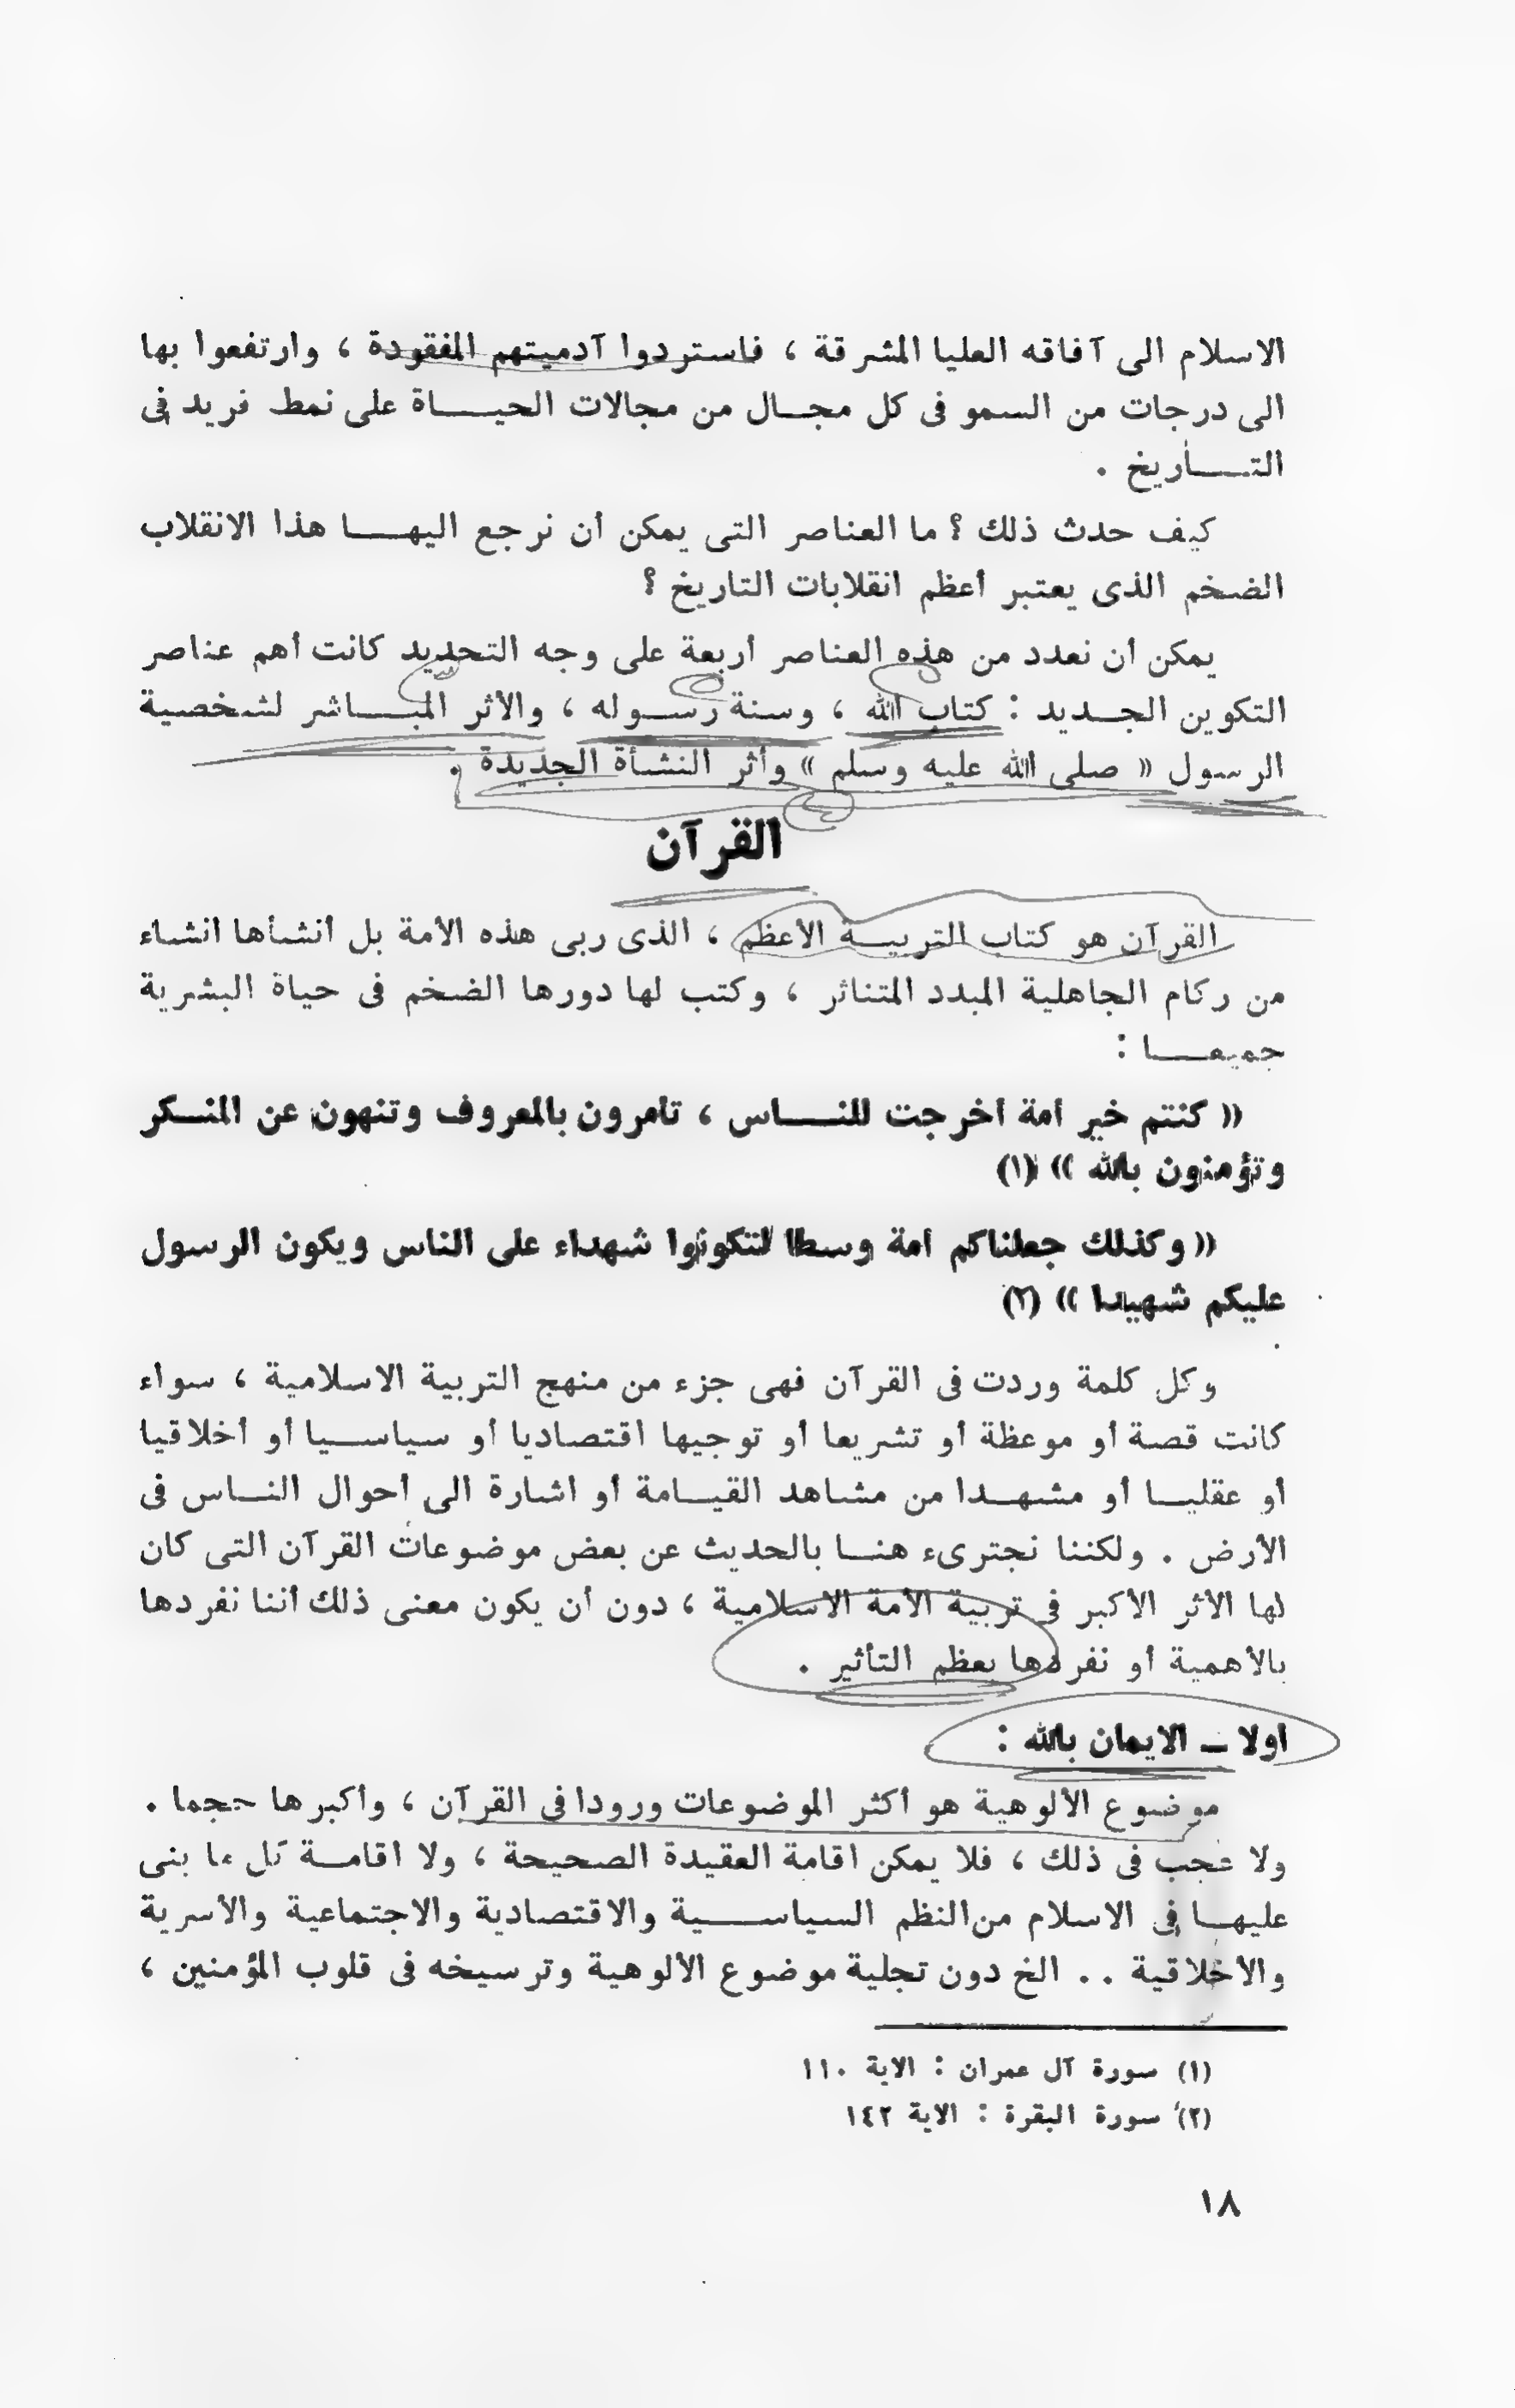 الاسلام الى آفاقه العليا المشرقة ، فاستردوا آدميتهم المفقودة ، وارتفعوا بها
الى درجات من السمو فى كل مجال من مجالات الحياة على نمط فريد فى
التاريخ .
كيف حدث ذلك ؟ ما العناصر التى يمكن أن نرجع اليها هذا الانقلاب
الضخم الذى يعتبر أعظم انقلابات التاريخ ؟
يمكن أن نعدد من هذه العناصر أربعة على وجه التحديد كانت أهم عناصر
التكوين الجديد : كتاب الله ، وسنة رسوله ، والأثر المباشر لشخصية
الرسول « صلى الله عليه وسلم » وأثر النشأة الجديدة .
القرآن
القرآن هو كتاب التربية الأعظم ، الذى ربى هذه الأمة بل أنشأها انشاء
من ركام الجاهلية المبدد المتناثر ، وكتب لها دورها الضخم فى حياة البشرية
جميعا :
« كنتم خير أمة أخرجت للناس ، تأمرون بالمعروف وتنهون عن المنكر
وتؤمنون بالله » (١)
« وكذلك جعلناكم أمة وسطا لتكونوا شهداء على الناس ويكون الرسول
عليكم شهيدا » (٢)
وكل كلمة وردت فى القرآن فهى جزء من منهج التربية الاسلامية ، سواء
كانت قصة أو موعظة أو تشريعا أو توجيها اقتصاديا أو سياسيا أو أخلاقيا
أو عقليا أو مشهدا من مشاهد القيامة أو اشارة الى أحوال الناس فى
الأرض . ولكننا نجتزىء هنا بالحديث عن بعض موضوعات القرآن التى كان
لها الأثر الأكبر فى تربية الأمة الاسلامية ، دون أن يكون معنى ذلك أننا نفردها
بالأهمية أو نفردها بعظم التأثير .
أولا ــ الايمان بالله :
موضوع الألوهية هو أكثر الموضوعات ورودا فى القرآن ، وأكبرها حجما .
ولا عجب فى ذلك ، فلا يمكن اقامة العقيدة الصحيحة ، ولا اقامة كل ما بنى
عليها فى الاسلام من النظم السياسية والاقتصادية والاجتماعية والأسرية
والأخلاقية . . الخ دون تجلية موضوع الألوهية وترسيخه فى قلوب المؤمنين ،
(١) سورة آل عمران : الاية ١١٠
(٢) سورة البقرة : الاية ١٤٢
١٨